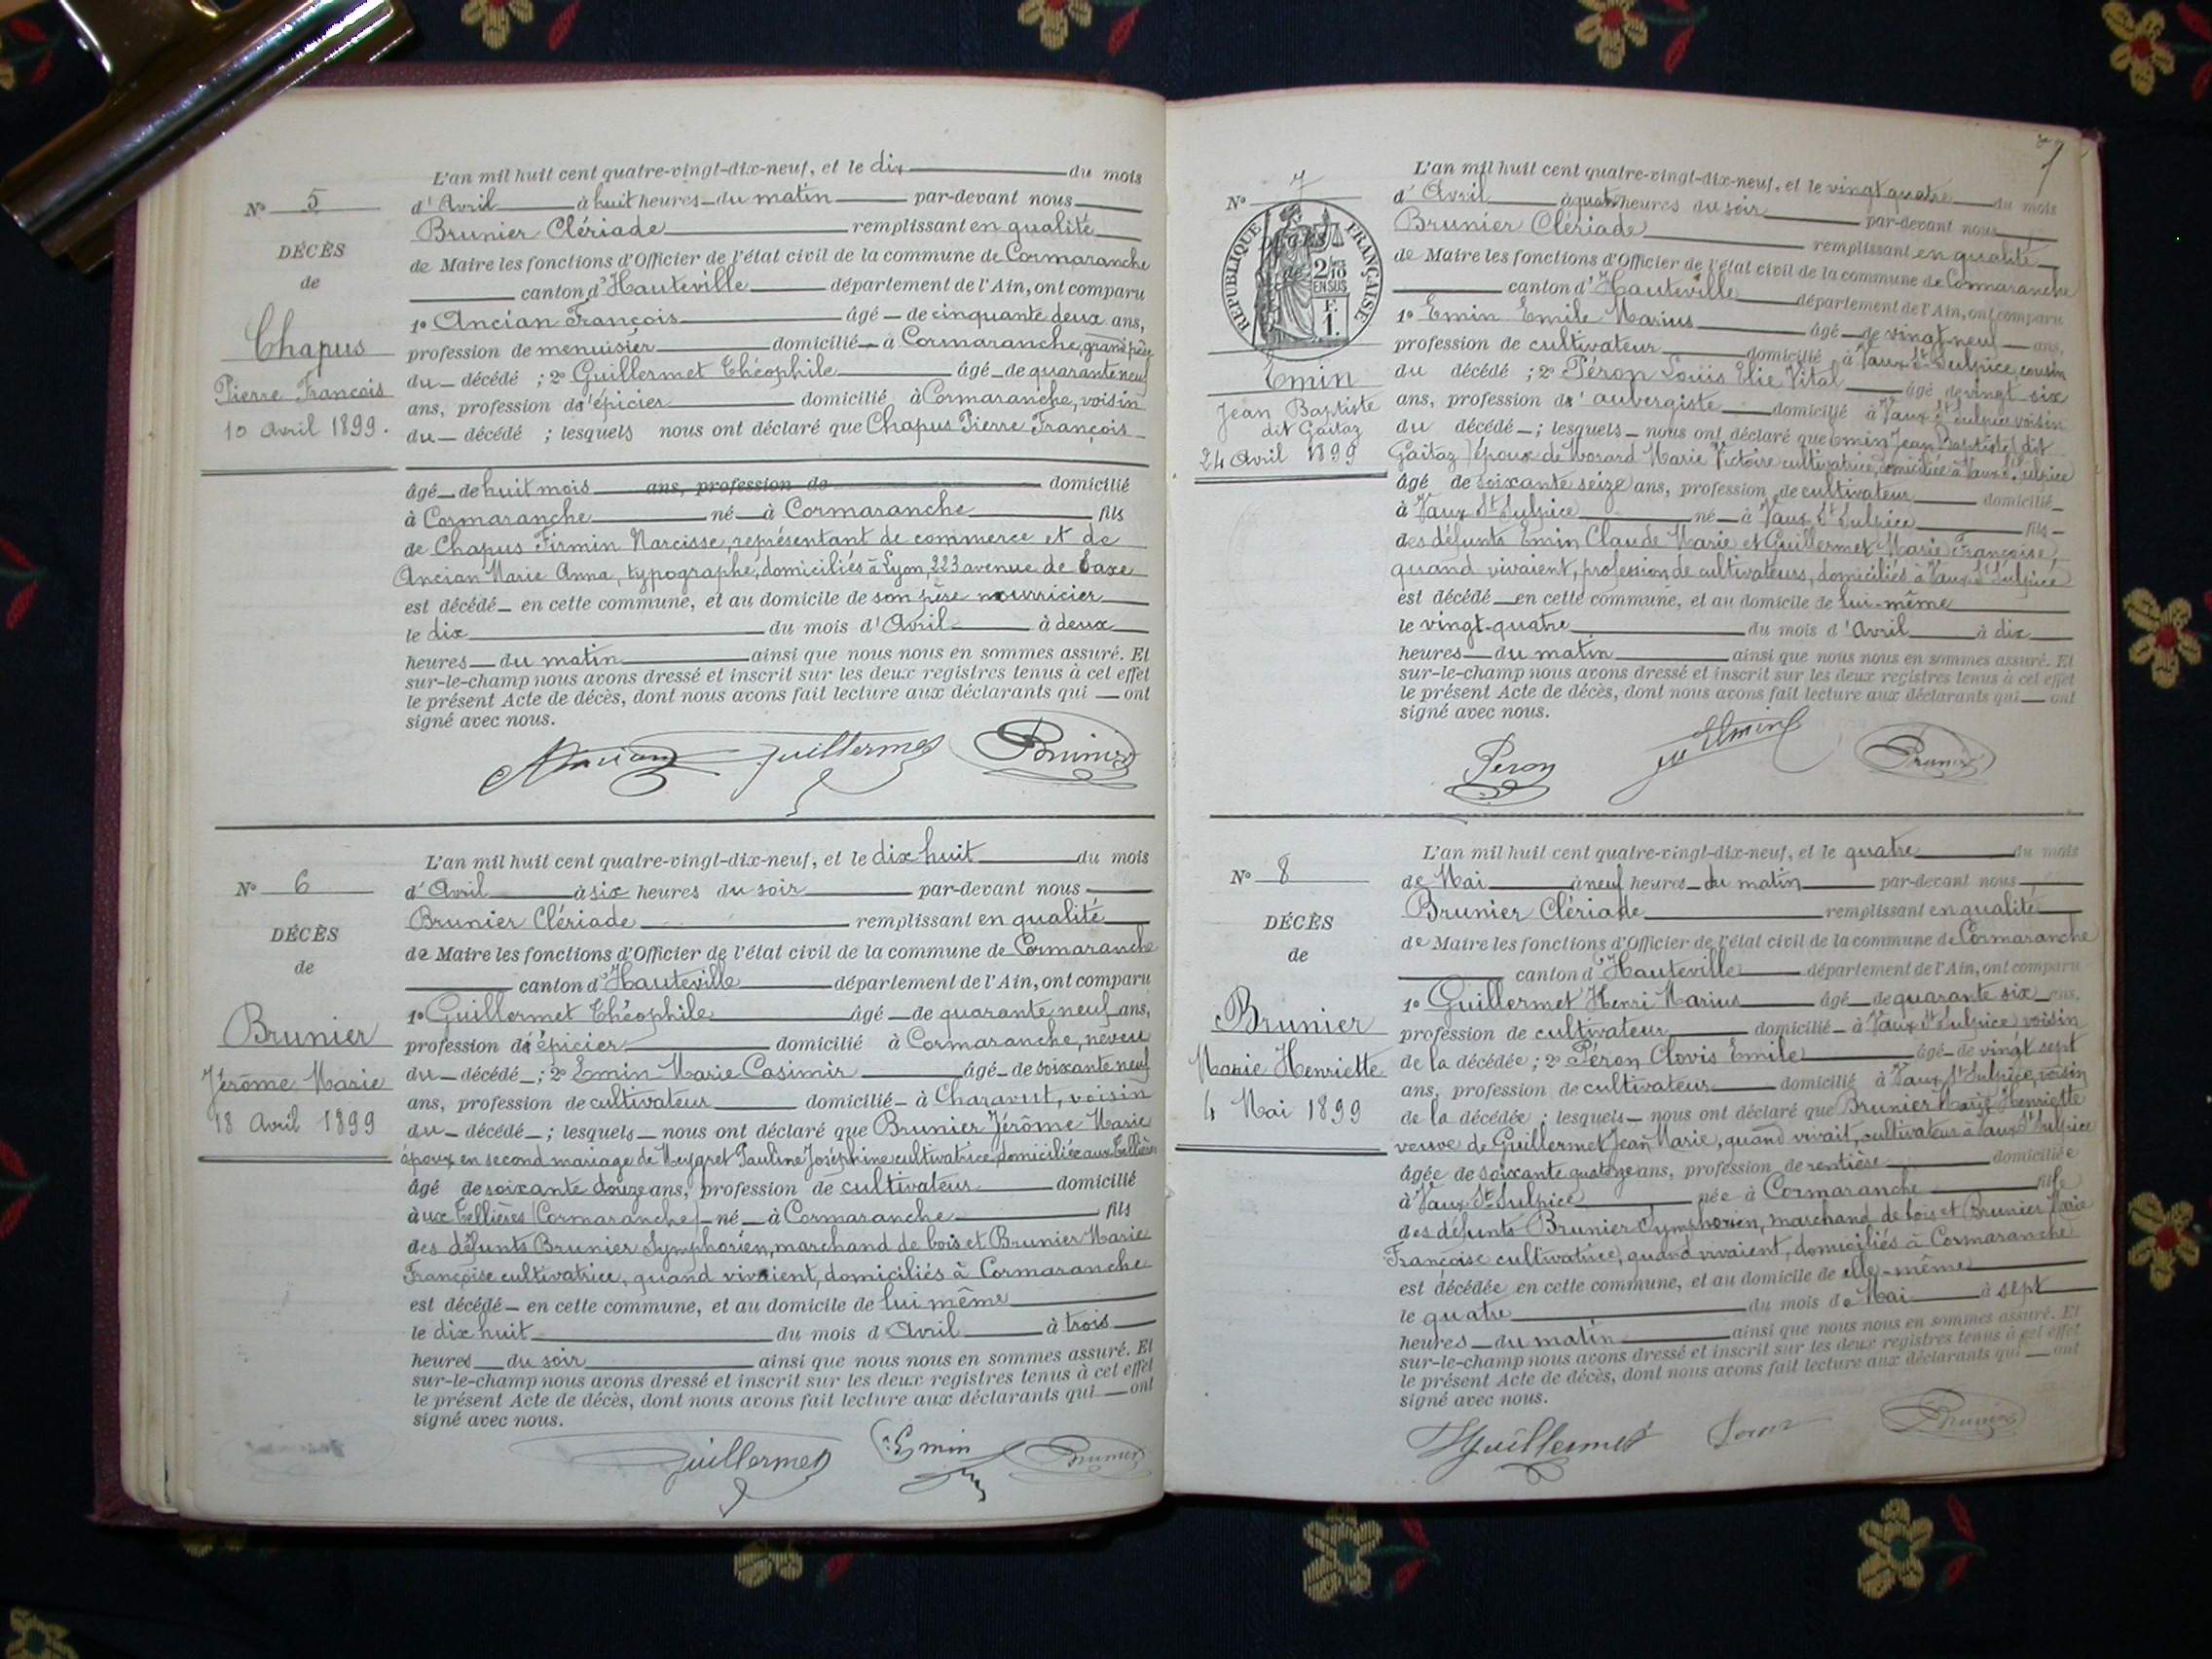 L'an mil huit cent quatre-vingt-dix-neuf, et le dix du mois
N° 5
d'Avril à huit heures du matin par-devant nous
Brunier Clériade remplissant en qualité
DÉCÈS
de Maire les fonctions d'Officier de l'état civil de la commune de Cormaranche
de
canton d'Hauteville département de l'Ain, ont comparu
1° Ancian François âgé de cinquante deux ans,
Chapus
profession de menuisier domicilié à Cormaranche, grand père
du décédé ; 2° Guillermet Théophile âgé de quarante neuf
Pierre François
ans, profession d'épicier domicilié à Cormaranche, voisin
10 Avril 1899.
du décédé ; lesquels nous ont déclaré que Chapus Pierre François
âgé de huit mois ans, profession de domicilié
à Cormaranche né à Cormaranche fils
de Chapus Firmin Narcisse, représentant de commerce et de
Ancian Marie Anna, typographe, domiciliés à Lyon, 223 avenue de Saxe
est décédé en cette commune, et au domicile de son père nourricier
le dix du mois d'Avril à deux
heures du matin ainsi que nous nous en sommes assuré. Et
sur-le-champ nous avons dressé et inscrit sur les deux registres tenus à cet effet
le présent Acte de décès, dont nous avons fait lecture aux déclarants qui ont
signé avec nous.
Ancian Guillermet Brunier
L'an mil huit cent quatre-vingt-dix-neuf, et le dix huit du mois
N° 6
d'Avril à six heures du soir par-devant nous
Brunier Clériade remplissant en qualité
DÉCÈS
de Maire les fonctions d'Officier de l'état civil de la commune de Cormaranche
de
canton d'Hauteville département de l'Ain, ont comparu
1° Guillermet Théophile âgé de quarante neuf ans,
Brunier
profession d'épicier domicilié à Cormaranche, neveu
du décédé ; 2° Emin Marie Casimir âgé de soixante neuf
Jérôme Marie
ans, profession de cultivateur domicilié à Charavut, voisin
18 Avril 1899
du décédé ; lesquels nous ont déclaré que Brunier Jérôme Marie
époux en second mariage de Meygret Pauline Joséphine cultivatrice, domiciliée aux Tellières
âgé de soixante douze ans, profession de cultivateur domicilié
aux Tellières (Cormaranche) né à Cormaranche fils
des défunts Brunier Symphorien, marchand de bois et Brunier Marie
Françoise cultivatrice, quand vivaient, domiciliés à Cormaranche
est décédé en cette commune, et au domicile de lui même
le dix huit du mois d'Avril à trois
heures du soir ainsi que nous nous en sommes assuré. Et
sur-le-champ nous avons dressé et inscrit sur les deux registres tenus à cet effet
le présent Acte de décès, dont nous avons fait lecture aux déclarants qui ont
signé avec nous.
Guillermet Emin Brunier
7
L'an mil huit cent quatre-vingt-dix-neuf, et le vingt quatre du mois
N° 7
d'Avril à quatre heures du soir par-devant nous
Brunier Clériade remplissant en qualité
RÉPUBLIQUE FRANÇAISE
DÉCÈS
de
2/10 EN SUS
F. 1.
de Maire les fonctions d'Officier de l'état civil de la commune de Cormaranche
canton d'Hauteville département de l'Ain, ont comparu
1° Emin Emile Marius âgé de vingt-neuf ans,
profession de cultivateur domicilié à Vaux St Sulpice, cousin
Emin
du décédé ; 2° Péron Louis Elie Vital âgé de vingt six
Jean Baptiste
ans, profession d'aubergiste domicilié à Vaux St Sulpice voisin
dit Gaitaz
du décédé ; lesquels nous ont déclaré que Emin Jean Baptiste (dit
24 Avril 1899
Gaitaz) époux de Morard Marie Victoire cultivatrice, domiciliée à Vaux St Sulpice
âgé de soixante seize ans, profession de cultivateur domicilié
à Vaux St Sulpice né à Vaux St Sulpice fils
des défunts Emin Claude Marie et Guillermet Marie Françoise,
quand vivaient, profession de cultivateurs, domiciliés à Vaux St Sulpice
est décédé en cette commune, et au domicile de lui-même
le vingt-quatre du mois d'Avril à dix
heures du matin ainsi que nous nous en sommes assuré. Et
sur-le-champ nous avons dressé et inscrit sur les deux registres tenus à cet effet
le présent Acte de décès, dont nous avons fait lecture aux déclarants qui ont
signé avec nous.
Peron Emin Brunier
L'an mil huit cent quatre-vingt-dix-neuf, et le quatre du mois
N° 8
de Mai à neuf heures du matin par-devant nous
Brunier Clériade remplissant en qualité
DÉCÈS
de Maire les fonctions d'Officier de l'état civil de la commune de Cormaranche
de
canton d'Hauteville département de l'Ain, ont comparu
1° Guillermet Henri Marius âgé de quarante six ans,
Brunier
profession de cultivateur domicilié à Vaux St Sulpice voisin
Marie Henriette
de la décédée ; 2° Péron Clovis Emile âgé de vingt sept
ans, profession de cultivateur domicilié à Vaux St Sulpice, voisin
4 Mai 1899
de la décédée ; lesquels nous ont déclaré que Brunier Marie Henriette
veuve de Guillermet Jean Marie, quand vivait, cultivateur à Vaux St Sulpice
âgée de soixante quatorze ans, profession de rentière domiciliée
à Vaux St Sulpice née à Cormaranche fille
des défunts Brunier Symphorien, marchand de bois et Brunier Marie
Françoise cultivatrice, quand vivaient, domiciliés à Cormaranche
est décédée en cette commune, et au domicile de elle-même
le quatre du mois de Mai à sept
heures du matin ainsi que nous nous en sommes assuré. Et
sur-le-champ nous avons dressé et inscrit sur les deux registres tenus à cet effet
le présent Acte de décès, dont nous avons fait lecture aux déclarants qui ont
signé avec nous.
Guillermet Peron Brunier